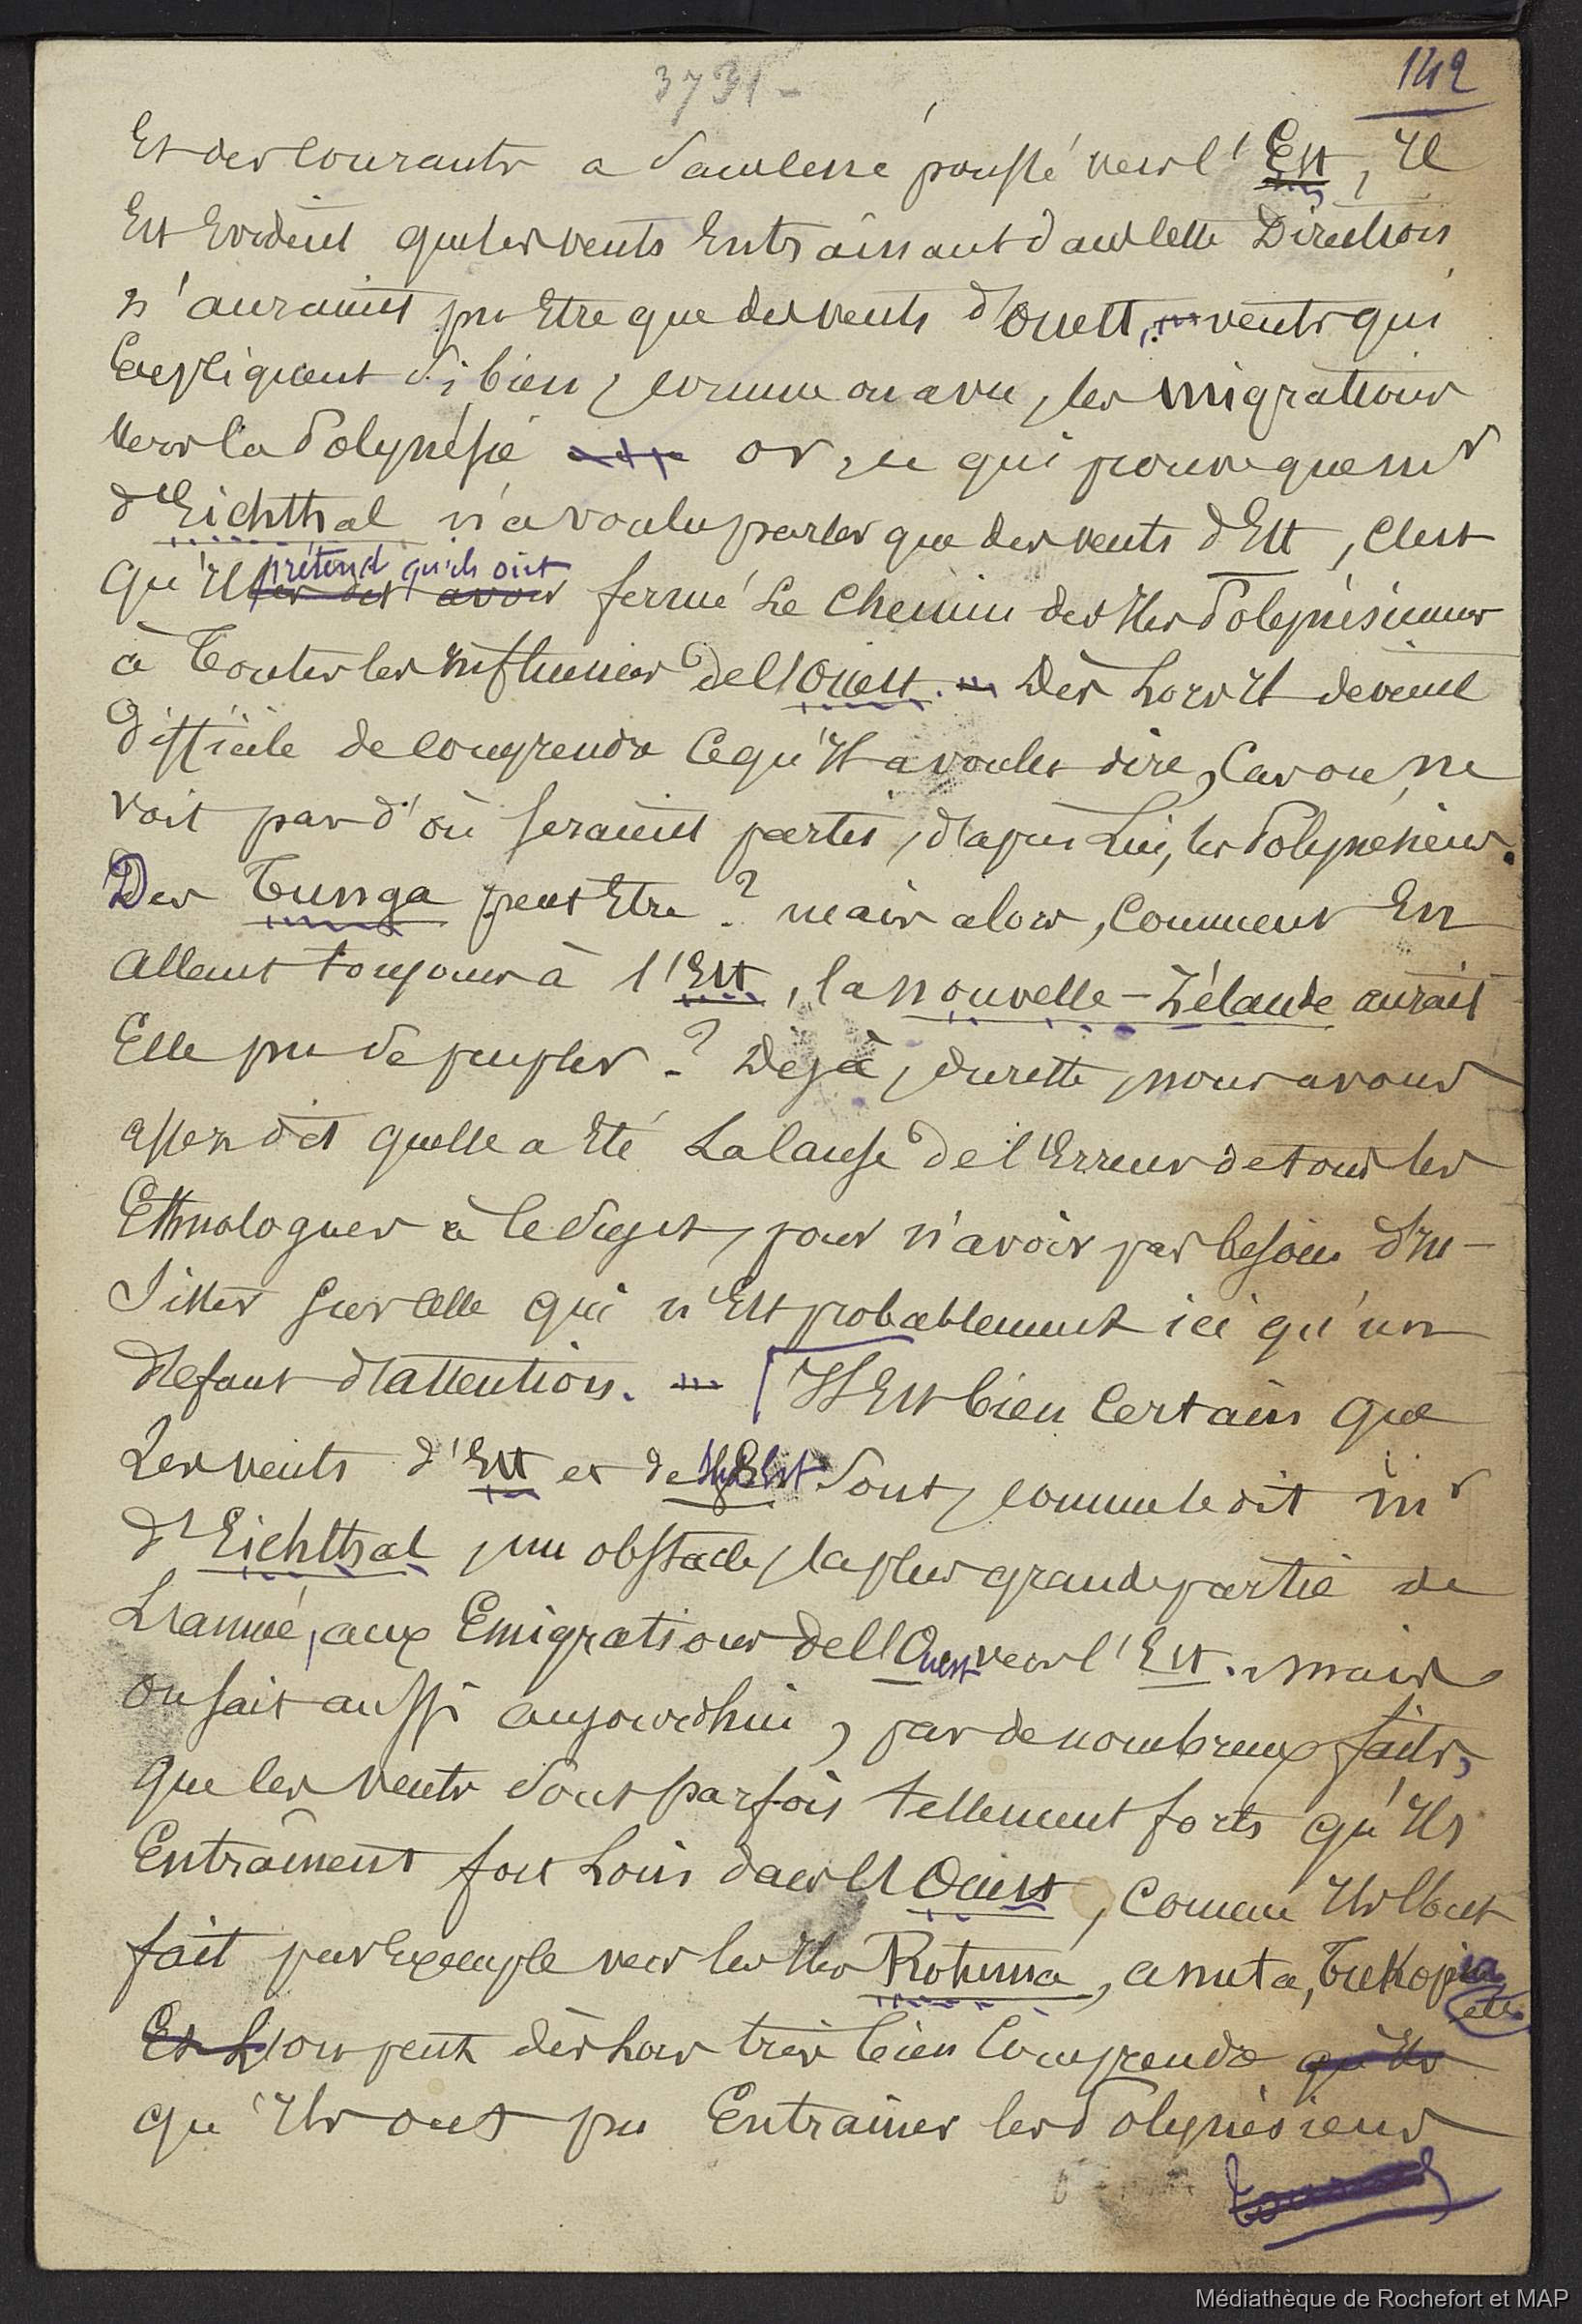 3731 -
142
Et des courants a dans ce cas poussé vers l'Est, Il
Est Evident que les vents Entrainant dans cette Direction
n'auraient pu Etre que des vents d'ouest, vents qui
Expliquent si bien, comme on a vu, les migrations
vers la Polynésie or, ce qui prouve que mr
d'Eichthal n'a voulu parler que des vents d'Est, c'est
prétend qu'ils ont
qu'Il les dit avoir fermé Le Chemin des Iles Polynésiennes
à Toutes les influences de l'Ouest. Dès Lors Il devient
Difficile de comprendre Ce qu'Il a voulu dire, Car on ne
voit pas d'où seraient partis, d'après Lui, les Polynésiens.
Des Tunga peut Etre ? mais alors, Comment En
allant toujours à l'Est, la nouvelle-Zélande aurait
Elle pu se peupler ? Déjà, du reste, nous avons
assez dit quelle a Eté La Cause de l'Erreur de tous les
Ethnologues à ce sujet, pour n'avoir pas besoin d'in-
sister sur celle qui n'Est probablement ici qu'un
défaut d'attention. Il Est bien Certain que
Les vents d'Est et de Sud Est sont, comme le dit mr
d'Eichthal, un obstacle, la plus grande partie de
L'année, aux Emigrations de l'Ouest vers l'Est. mais
on sait aussi aujourd'hui, par de nombreux faits,
que les vents sont parfois tellement forts qu'Ils
Entraînent fort Loin dans l'Ouest, Comme Ils l'ont
fait par Exemple vers les Iles Rotuma, anuta, Tukopia
etc.
Et L'on peut dès Lors très bien Comprendre qu'Ils
qu'Ils ont pu Entrainer les Polynésiens
Médiathèque de Rochefort et MAP